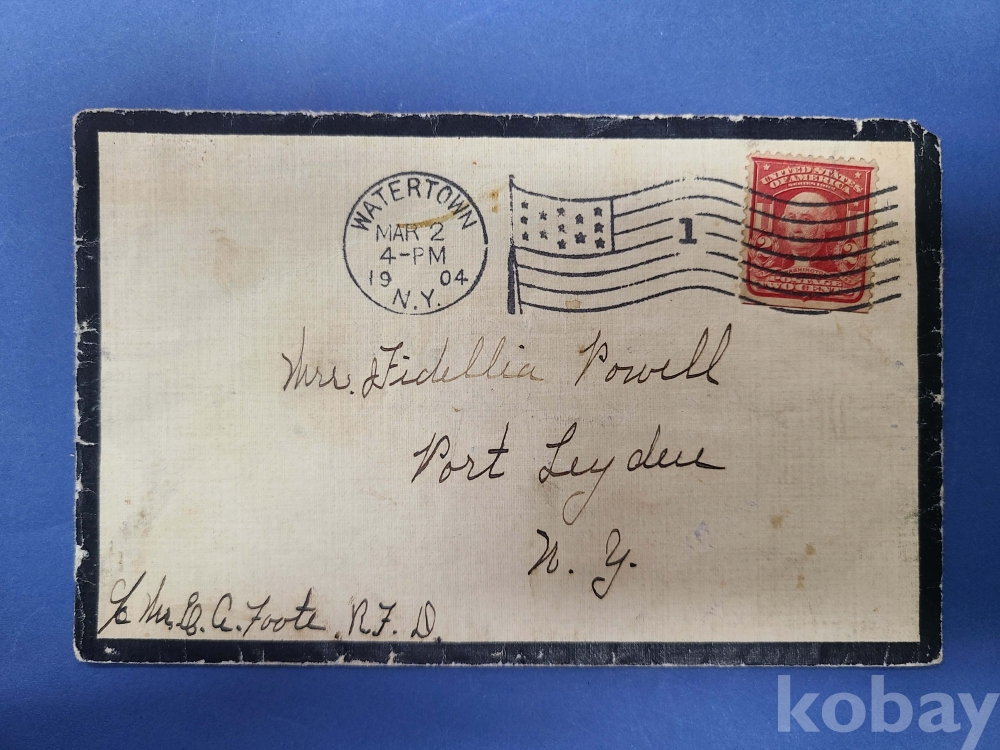 WATERTOWN
MAR 2
4-PM
19 04
N.Y.
1
UNITED STATES
OF AMERICA
SERIES 1902
2 2
WASHINGTON
POSTAGE
TWO CENTS
Mrs. Fidellia Powell
Port Leyden
N. Y.
℅ Mr. C. A. Foote, R.F.D.
kobay